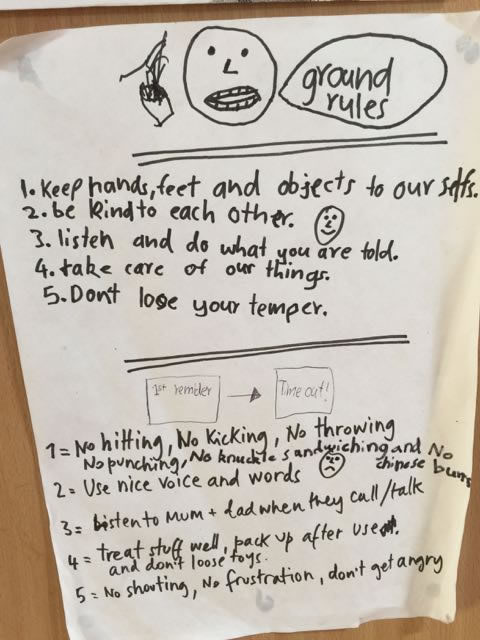 ground
rules
1. Keep hands, feet and objects to our selfs.
2. be kind to each other.
3. listen and do what you are told.
4. take care of our things.
5. Dont lose your temper.
1st reminder
Time out!
1 = No hitting, No Kicking, No throwing
No punching, No knuckle sandwiching and No
chinese burns
2 = Use nice voice and words
3 = listen to Mum + dad when they call/talk
4 = treat stuff well, pack up after use.
and don't loose toys.
5 = No shouting, No frustration, don't get angry